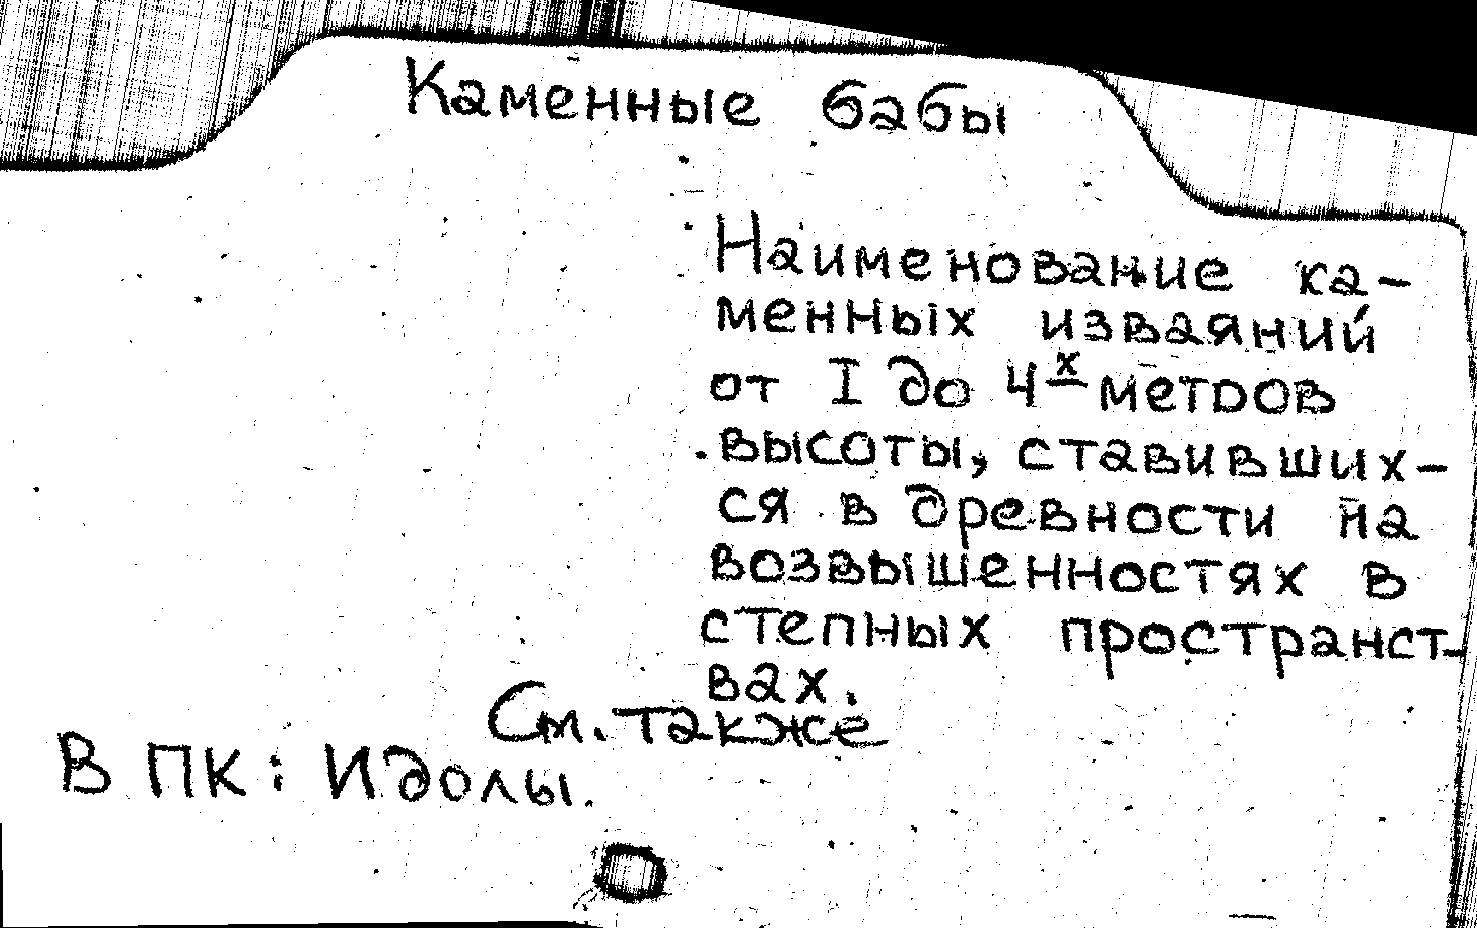 Каменные бабы
Наименование ка-
менных изваяний
от I до 4х метров
высоты, ставивших-
ся в древности на
возвышенностях в
степных пространст-
вах.
См. также
В ПК: Идолы.